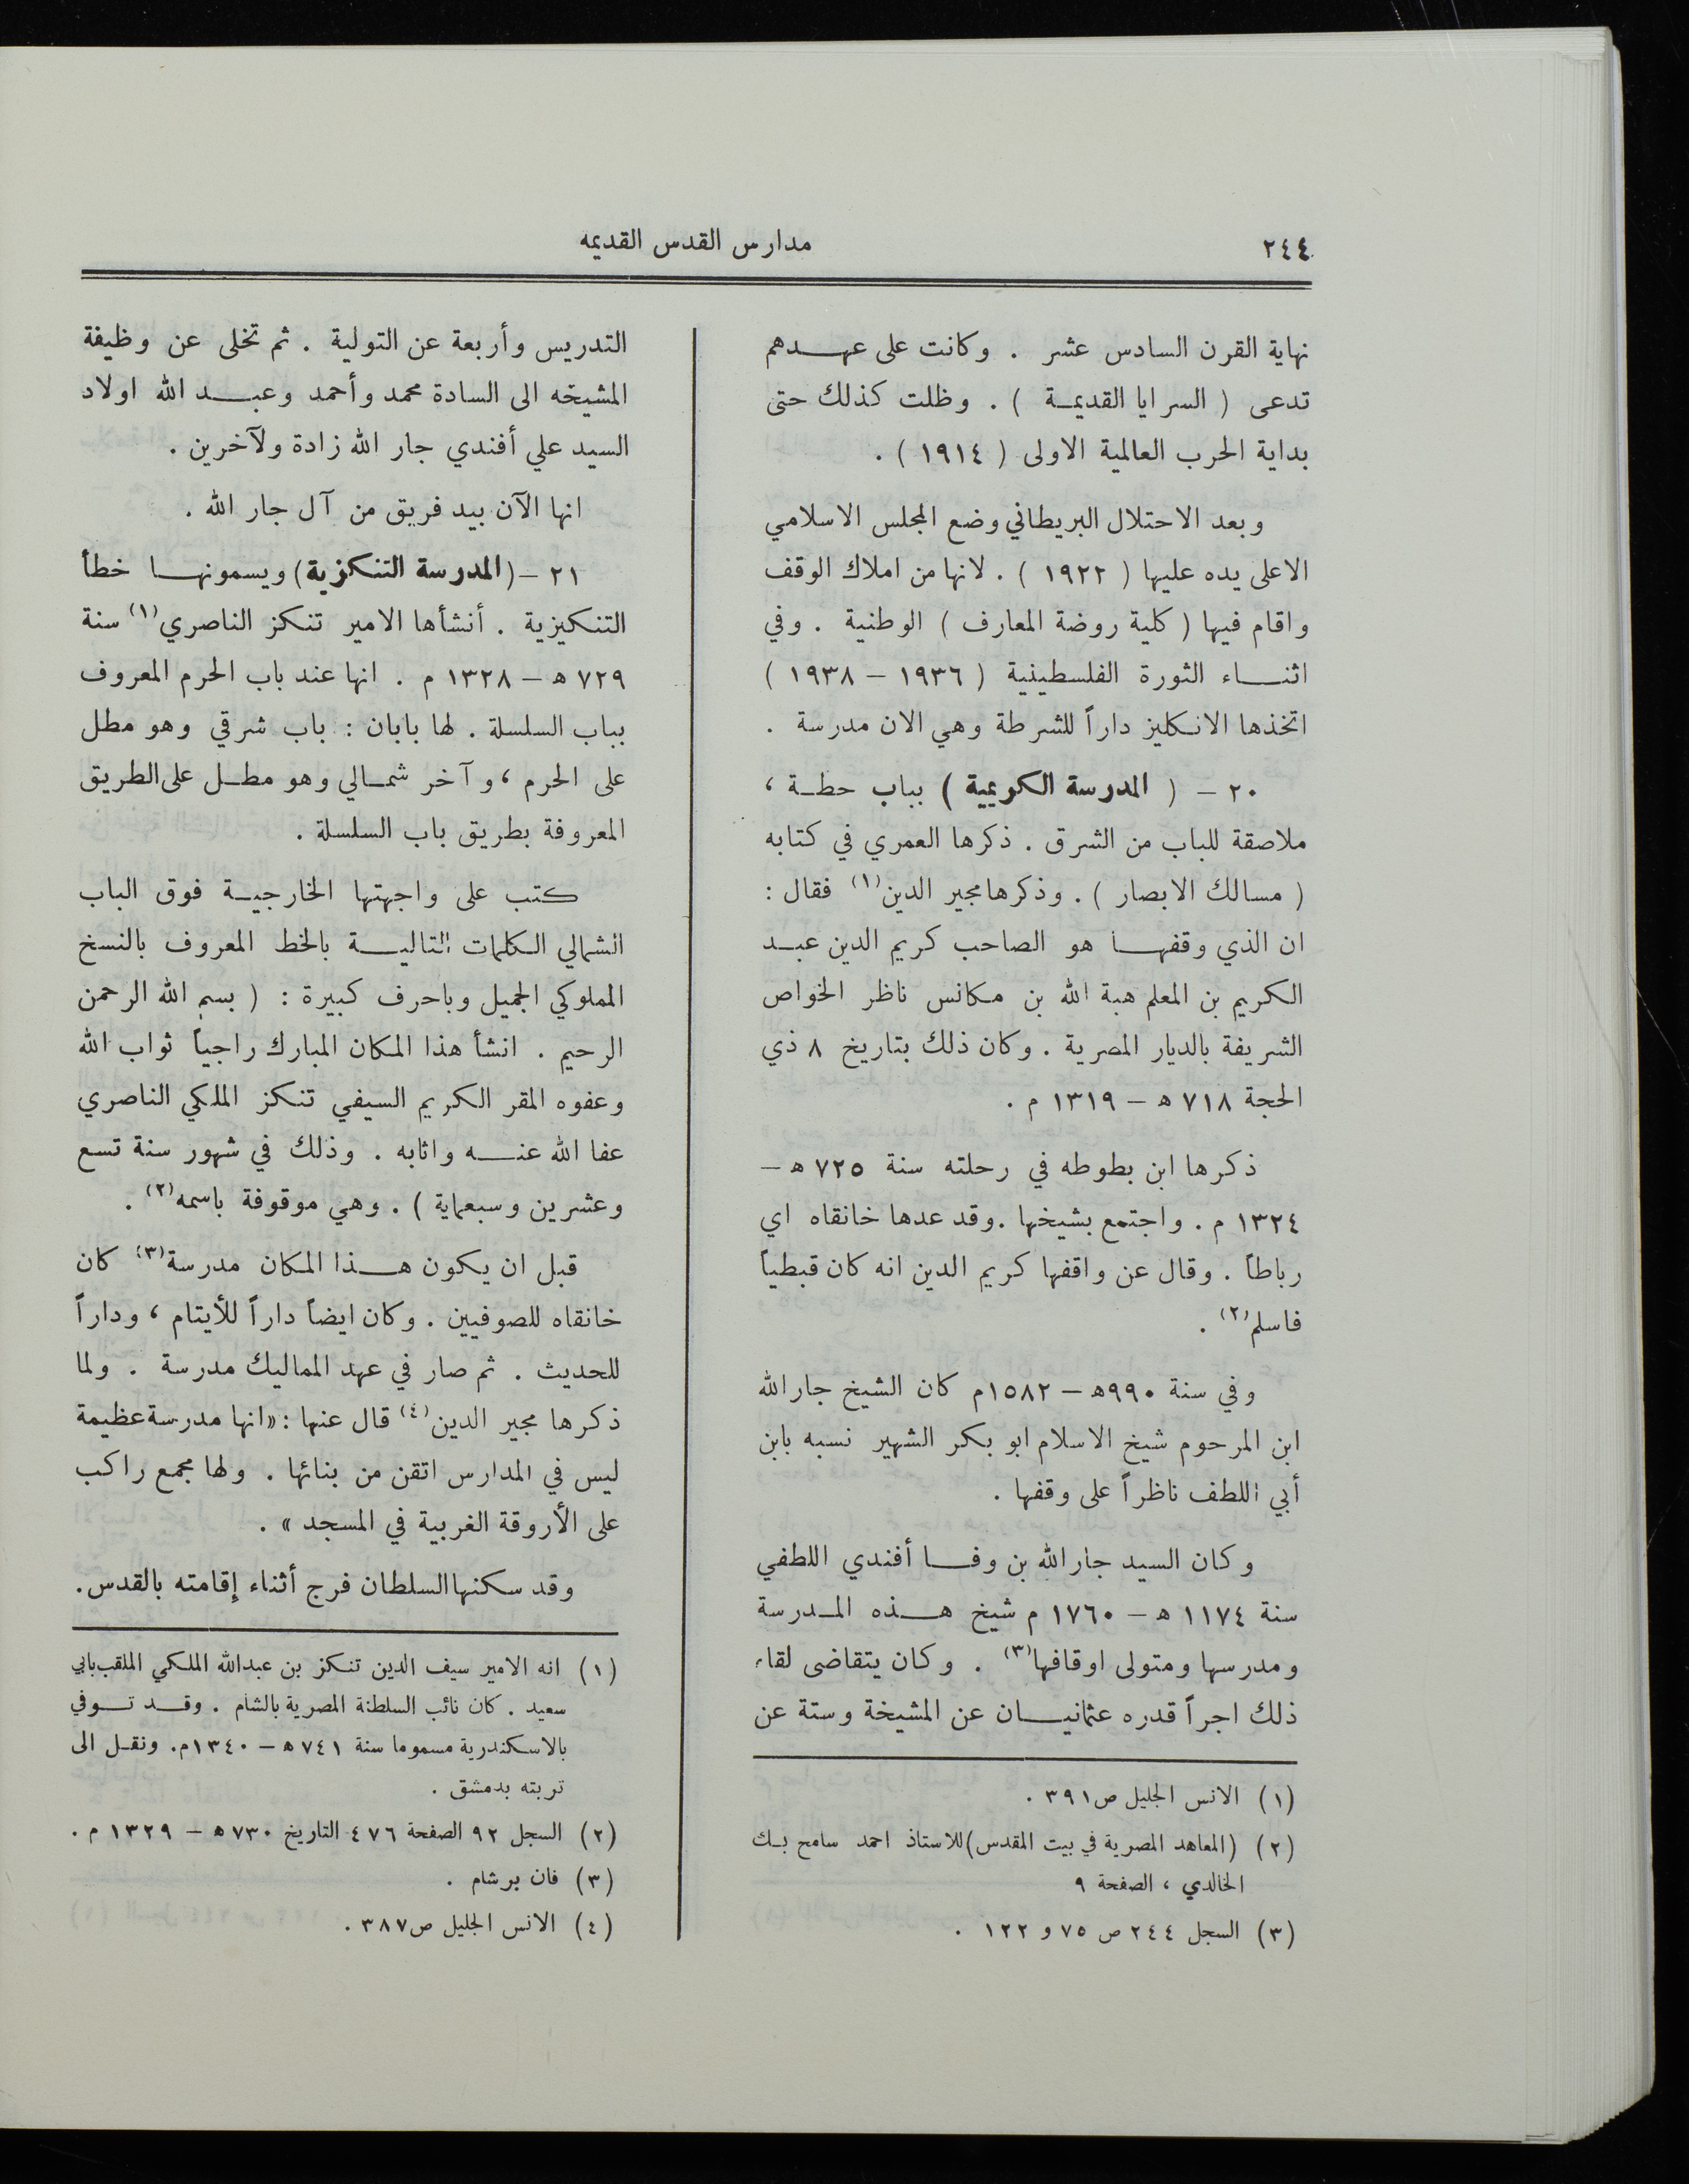 ٢٤٤
مدارس القدس القديمه
نهاية القرن السادس عشر . وكانت على عهدهم
تدعى ( السرايا القديمة ) . وظلت كذلك حتى
بداية الحرب العالمية الاولى ( ١٩١٤ ) .
وبعد الاحتلال البريطاني وضع المجلس الاسلامي
الاعلى يده عليها ( ١٩٢٢ ) . لانها من املاك الوقف
واقام فيها ( كلية روضة المعارف ) الوطنية . وفي
اثناء الثورة الفلسطينية ( ١٩٣٦ – ١٩٣٨ )
اتخذها الانكليز داراً للشرطة وهي الان مدرسة .
٢٠ – ( المدرسة الكريمية ) بباب حطة ،
ملاصقة للباب من الشرق . ذكرها العمري في كتابه
( مسالك الابصار ) . وذكرها مجير الدين(١) فقال :
ان الذي وقفها هو الصاحب كريم الدين عبد
الكريم بن المعلم هبة الله بن مكانس ناظر الخواص
الشريفة بالديار المصرية . وكان ذلك بتاريخ ٨ ذي
الحجة ٧١٨ ه – ١٣١٩ م .
ذكرها ابن بطوطه في رحلته سنة ٧٢٥ ه –
١٣٢٤ م . واجتمع بشيخها . وقد عدها خانقاه اي
رباطاً . وقال عن واقفها كريم الدين انه كان قبطياً
فاسلم(٢) .
وفي سنة ٩٩٠ه – ١٥٨٢م كان الشيخ جار الله
ابن المرحوم شيخ الاسلام ابو بكر الشهير نسبه بابن
أبي اللطف ناظراً على وقفها .
وكان السيد جار الله بن وفا أفندي اللطفي
سنة ١١٧٤ ه – ١٧٦٠ م شيخ هذه المدرسة
ومدرسها ومتولى اوقافها(٣) . وكان يتقاضى لقاء
ذلك اجراً قدره عثمانيان عن المشيخة وستة عن
(١) الانس الجليل ص٣٩١ .
(٢) (المعاهد المصرية في بيت المقدس) للاستاذ احمد سامح بك
الخالدي ، الصفحة ٩
(٣) السجل ٢٤٤ ص ٧٥ و ١٢٢ .
التدريس وأربعة عن التولية . ثم تخلى عن وظيفة
المشيخه الى السادة محمد وأحمد وعبد الله اولاد
السيد علي أفندي جار الله زادة ولآخرين .
انها الآن بيد فريق من آل جار الله .
٢١ – (المدرسة التنكزية) ويسمونها خطأ
التنكيزية . أنشأها الامير تنكز الناصري(١) سنة
٧٢٩ ه – ١٣٢٨ م . انها عند باب الحرم المعروف
بباب السلسلة . لها بابان : باب شرقي وهو مطل
على الحرم ، وآخر شمالي وهو مطل على الطريق
المعروفة بطريق باب السلسلة .
كتب على واجهتها الخارجية فوق الباب
الشمالي الكلمات التالية بالخط المعروف بالنسخ
المملوكي الجميل وباحرف كبيرة : ( بسم الله الرحمن
الرحيم . انشأ هذا المكان المبارك راجياً ثواب الله
وعفوه المقر الكريم السيفي تنكز الملكي الناصري
عفا الله عنه واثابه . وذلك في شهور سنة تسع
وعشرين وسبعماية ) . وهي موقوفة باسمه(٢) .
قبل ان يكون هذا المكان مدرسة(٣) كان
خانقاه للصوفيين . وكان ايضاً داراً للأيتام ، وداراً
للحديث . ثم صار في عهد المماليك مدرسة . ولما
ذكرها مجير الدين(٤) قال عنها : «انها مدرسة عظيمة
ليس في المدارس اتقن من بنائها . ولها مجمع راكب
على الأروقة الغربية في المسجد » .
وقد سكنها السلطان فرج أثناء إقامته بالقدس .
(١) انه الامير سيف الدين تنكز بن عبدالله الملكي الملقب بابي
سعيد . كان نائب السلطنة المصرية بالشام . وقد توفي
بالاسكندرية مسموما سنة ٧٤١ ه – ١٣٤٠م. ونقل الى
تربته بدمشق .
(٢) السجل ٩٢ الصفحة ٤٧٦ التاريخ ٧٣٠ ه – ١٣٢٩ م .
(٣) فان برشام .
(٤) الانس الجليل ص٣٨٧ .